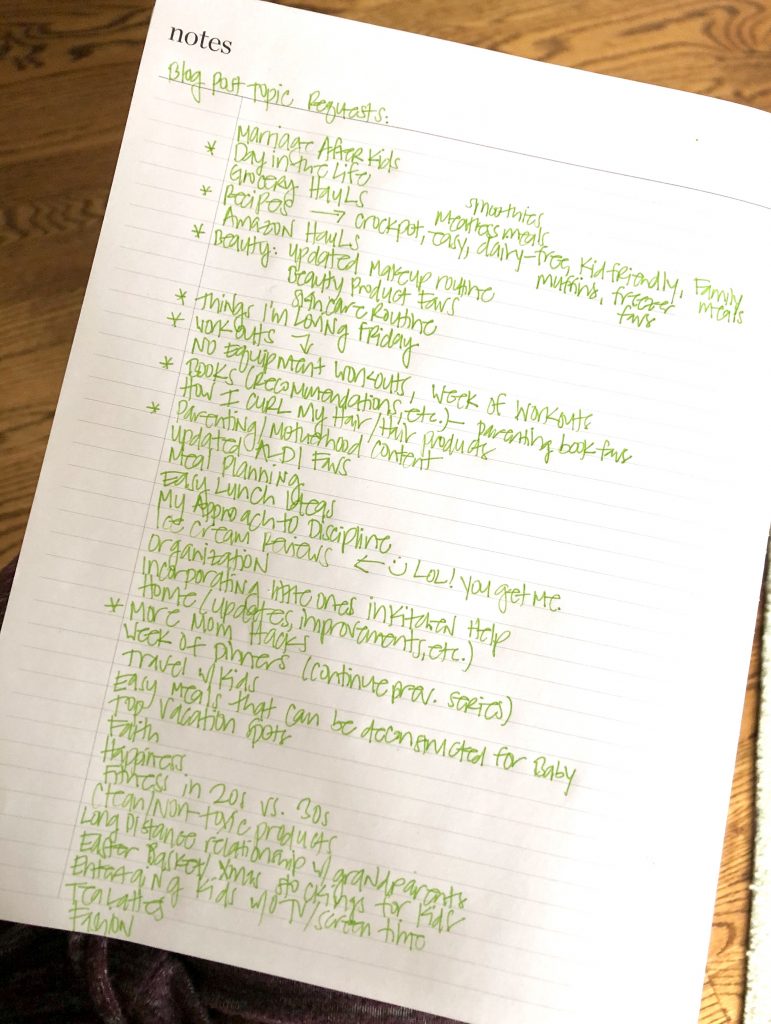 notes
Blog Post Topic Requests:
Marriage After Kids
* Day in the Life
Grocery Hauls
* Recipes → crockpot, easy, dairy-free, kid friendly, Family meals
smoothies
meatless meals
muffins, freezer favs
Amazon Hauls
* Beauty: updated makeup routine
Beauty Product Favs
Skincare Routine
* Things I'm Loving Friday
* Workouts ↴
No Equipment Workouts, Week of Workouts
* Books (Recommendations, etc.) – parenting book favs
How I Curl My Hair/Hair products
* Parenting/Motherhood Content
Updated ALDI Favs
Meal Planning
Easy Lunch Ideas
My Approach to Discipline
Ice Cream Reviews ← :) LOL! You get me.
Organization
Incorporating little ones in Kitchen Help
Home (updates, improvements, etc.)
* More Mom Hacks
Week of Dinners (continue prev. series)
Travel w/ Kids
Easy Meals that can be deconstructed for Baby
Top Vacation Spots
Faith
Happiness
Fitness in 20s vs. 30s
Clean/Non-toxic products
Long Distance relationship w/ grandparents
Easter Basket/Xmas stockings for Kids
Entertaing Kids w/o TV/screen time
Tea Lattes
Fashion